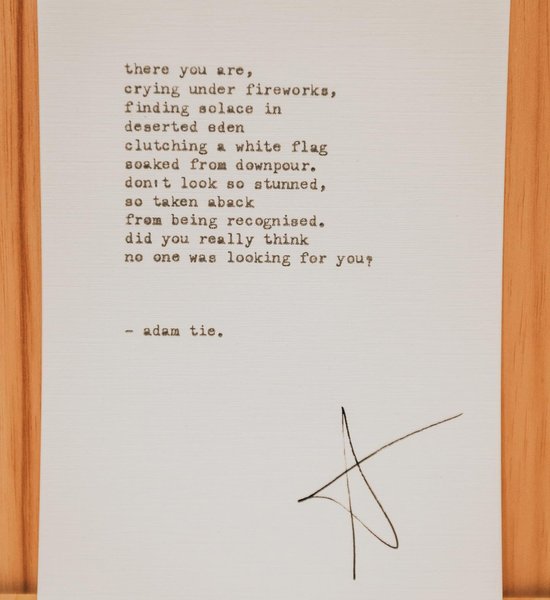 there you are,
crying under fireworks,
finding solace in
deserted eden
clutching a white flag
soaked from downpour.
don't look so stunned,
so taken aback
from being recognised.
did you really think
no one was looking for you?
- adam tie.